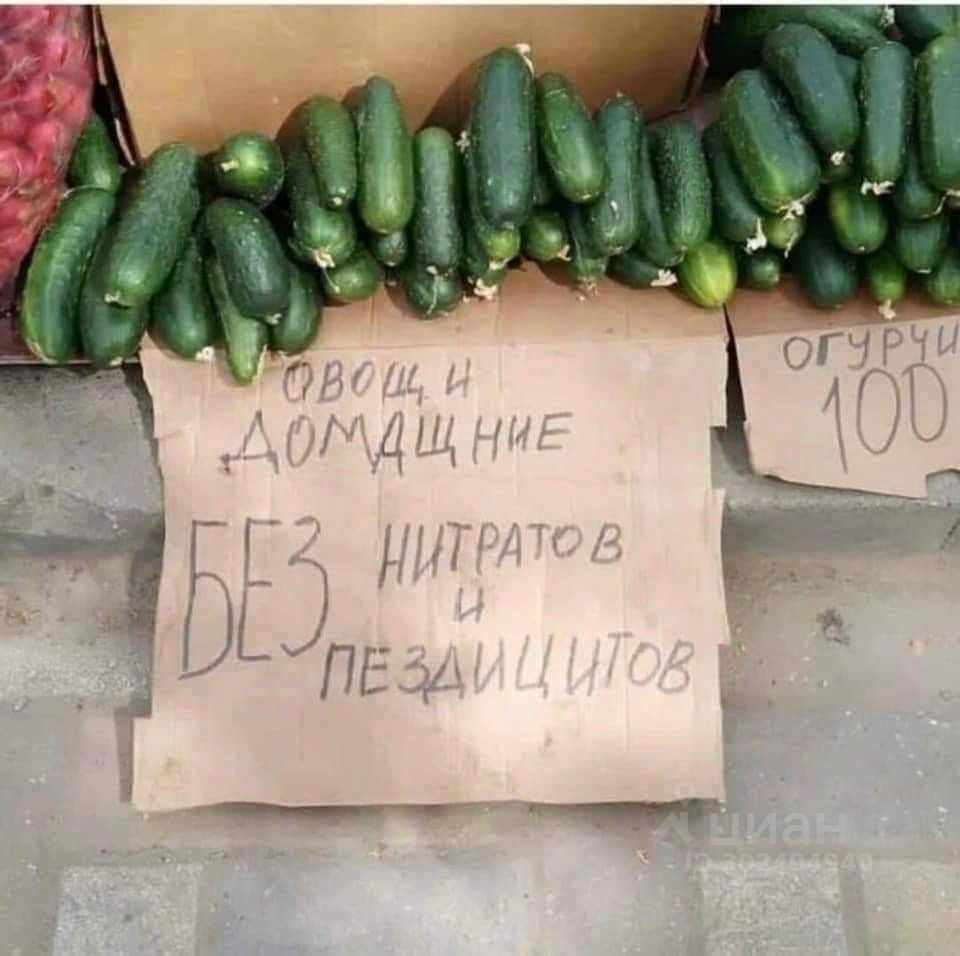 ОВОЩИ
ДОМАЩНИЕ
БЕЗ НИТРАТОВ
И
ПЕЗДИЦИТОВ
ОГУРЧИ
100
циан
ID 302494940